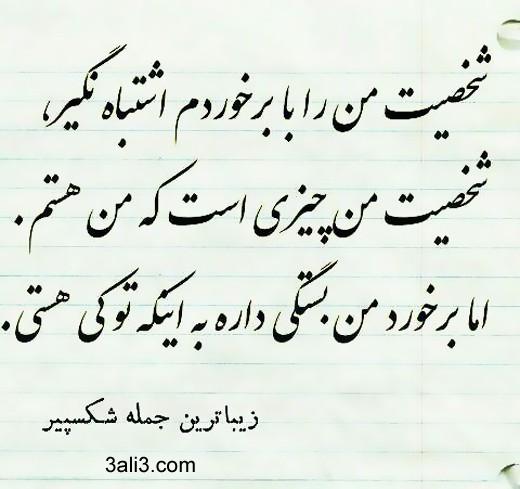 شخصیت من را با برخوردم اشتباه نگیر،
شخصیت من چیزی است که من هستم .
اما برخورد من بستگی داره به اینکه تو کی هستی .
زیباترین جمله شکسپیر
3ali3.com